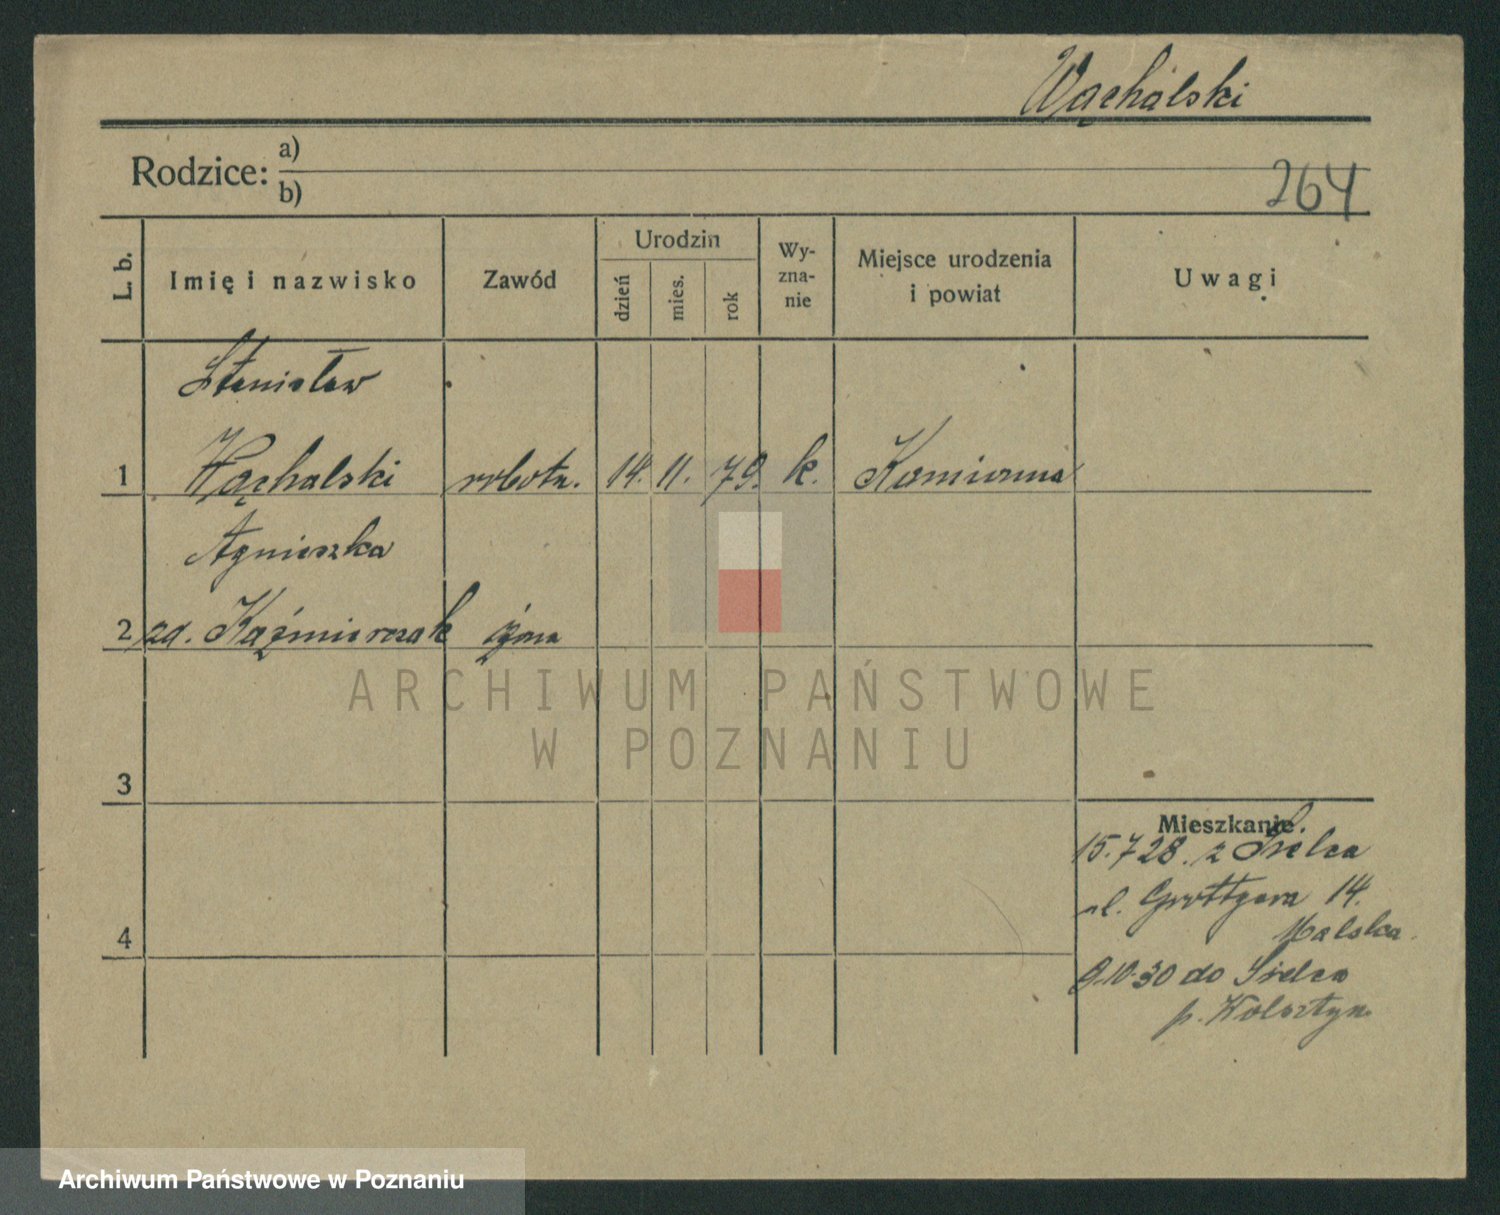 Wąchalski
Rodzice: a)
b)
264
L. b.
Imię i nazwisko
Zawód
Urodzin
dzień
mies.
rok
Wy-
zna-
nie
Miejsce urodzenia
i powiat
Uwagi
Stanisław
1 Wąchalski robotn. 14. 11. 79. k. Kamionna
Agnieszka
2 zd. Kaźmierczak żona
3
4
Mieszkanie.
15.7 28. z Sielca
ul. Grottgera 14.
Malska
9.10.30 do Sielca
p. Wolsztyn
ARCHIWUM PAŃSTWOWE
W POZNANIU
Archiwum Państwowe w Poznaniu